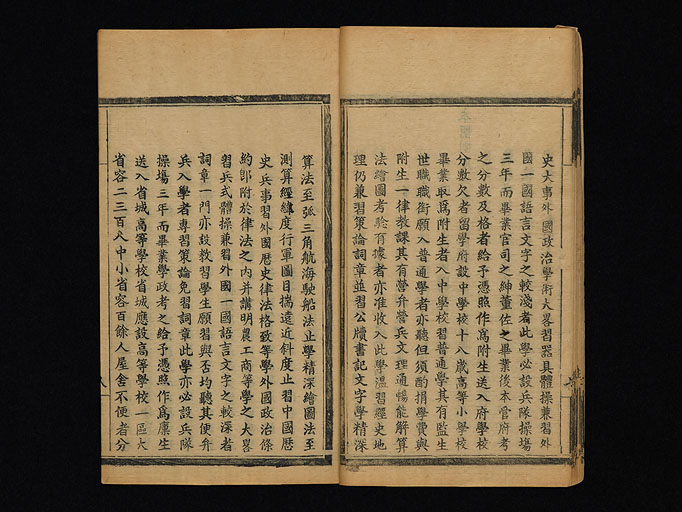 史大事外國政治學術大畧習器具體操兼習外
國一國語言文字之較淺者此學必設兵隊操塲
三年而畢業官司之紳董佐之畢業後本管府考
之分數及格者給予憑照作為附生送入府學校
分數欠者留學府設中學校十八歲高等小學校
畢業取爲附生者入中學校習普通學其有監生
世職職銜願入普通學者亦聽但須酌捐學費與
附生一律教課其有營弁營兵文理通暢能解算
法繪圖考驗有據者亦准收入此學溫習經史地
理仍兼習策論詞章並習公牘書記文字學精深
算法至弧三角航海駛船法止學精深繪圖法至
測算經緯度行軍圖目揣遠近斜度止習中國歷
史兵事習外國歷史律法格致等學外國政治條
約卽附於律法之內并講明農工商等學之大畧
習兵式體操兼習外國一國語言文字之較深者
詞章一門亦設教習學生願習與否均聽其便弁
兵入學者專習策論免習詞章此學亦必設兵隊
操塲三年而畢業學政考之給予憑照作爲廩生
送入省城高等學校省城應設高等學校一區大
省容二三百人中小省容百餘人屋舍不便者分